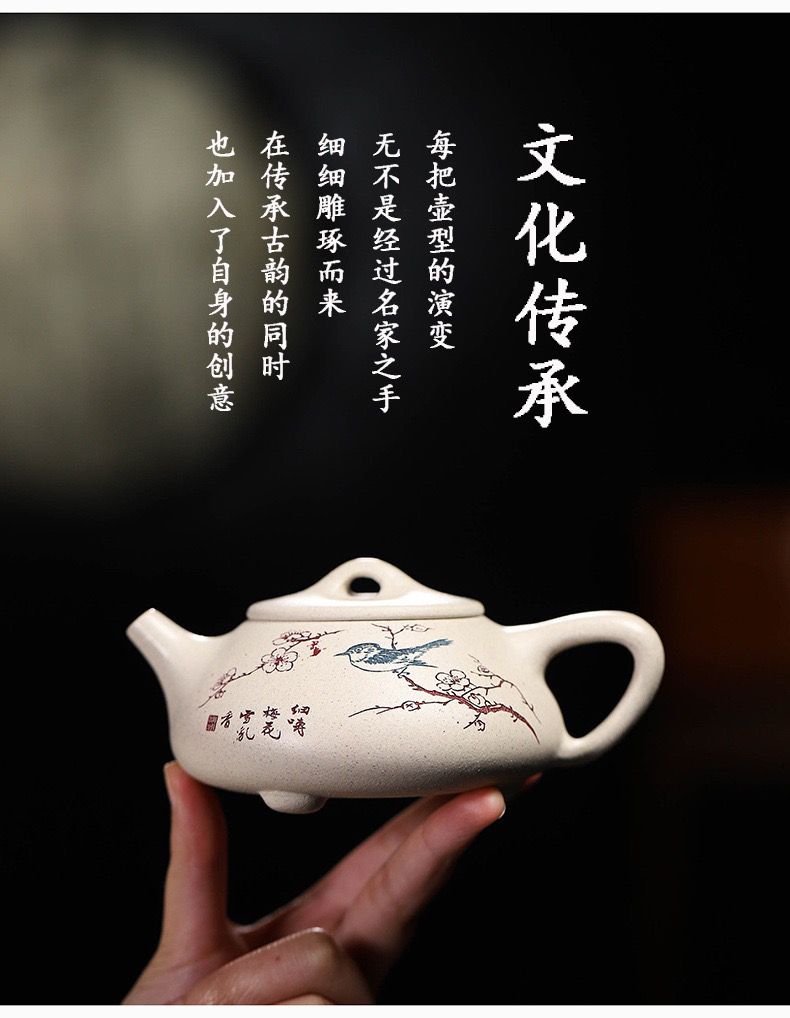 文化传承
每把壶型的演变
无不是经过名家之手
细细雕琢而来
在传承古韵的同时
也加入了自身的创意
细嚼
梅花
雪乳
香